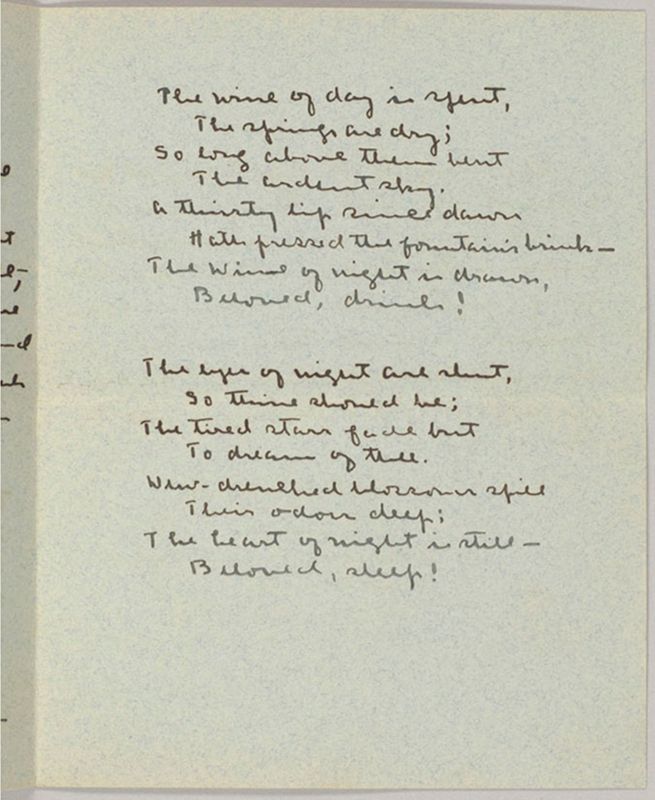 The wine of day is spent,
The springs are dry;
So long above them bent
The ardent sky.
A thirsty lip since dawn
Hath pressed the fountain's brink—
The Wine of night is drawn,
Beloved, drink!
The eyes of night are shut,
So thine should be;
The tired stars fade but
To dream of thee.
Dew-drenched blossoms spill
Their odors deep;
The heart of night is still—
Beloved, sleep!